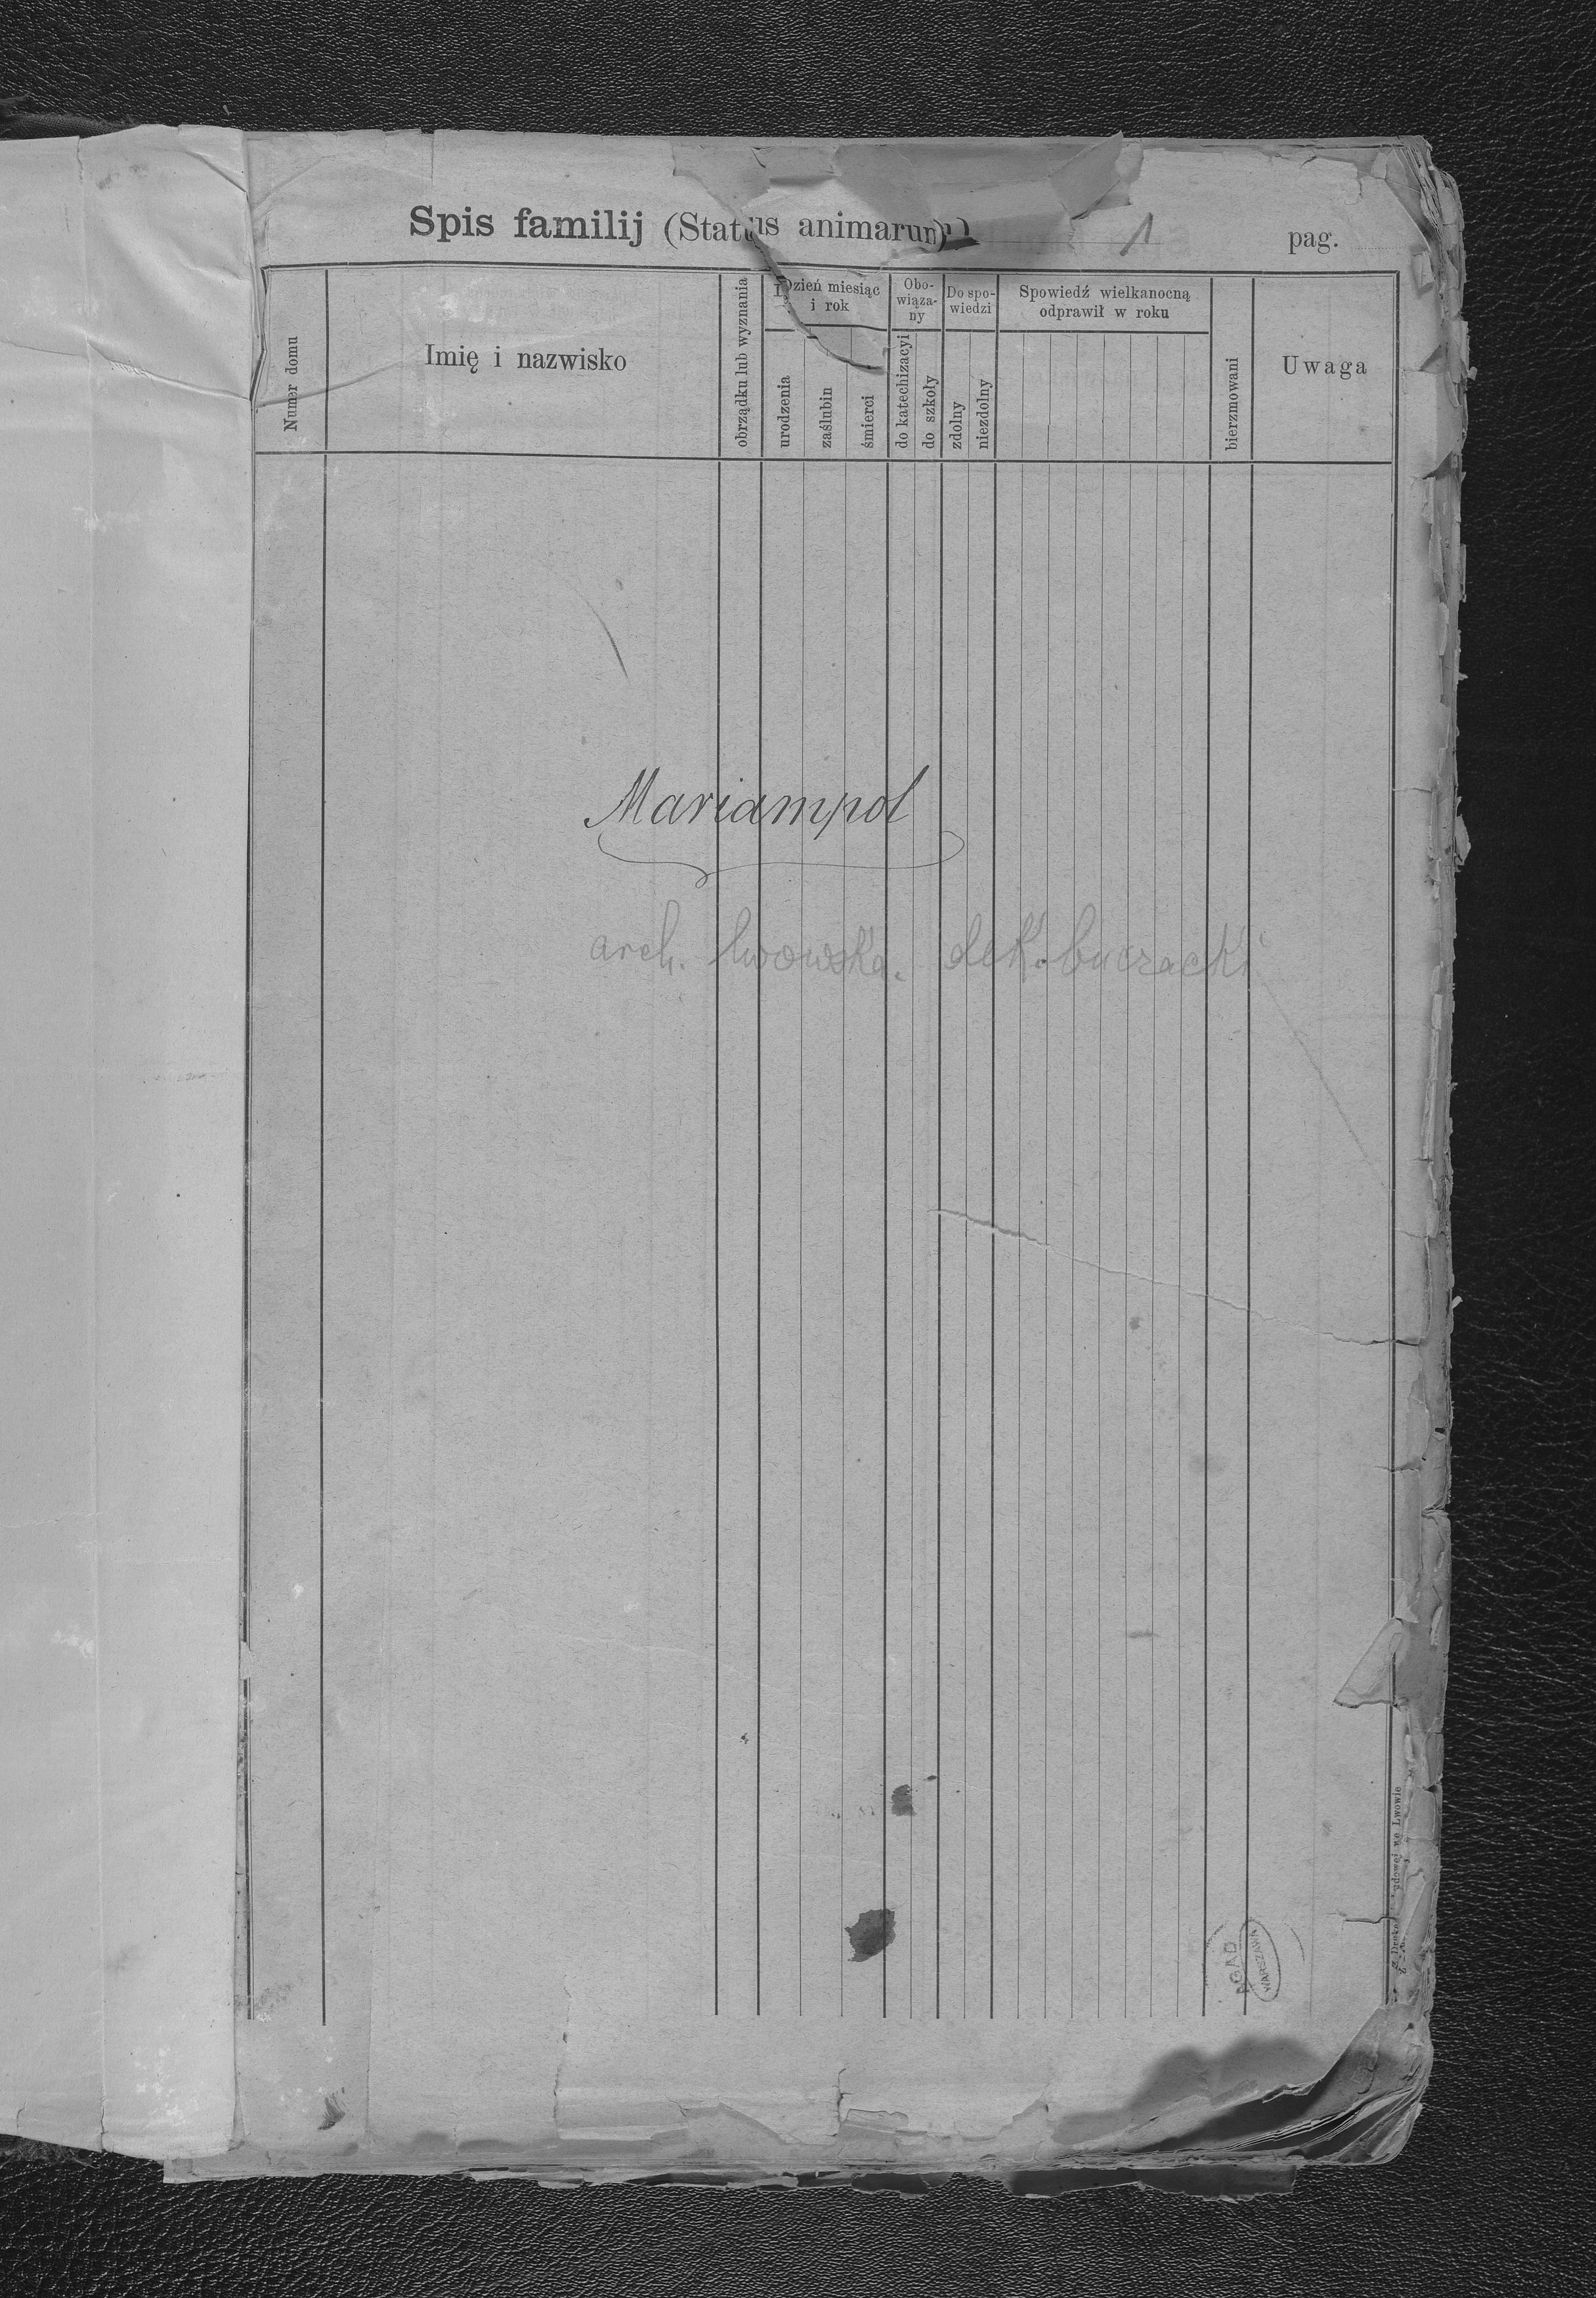 Spis familij (Status animarum) 1 pag.
Numer domu
Imię i nazwisko
obrządku lub wyznania
Dzień miesiąc
i rok
urodzenia
zaślubin
śmierci
Obo-
wiąza-
ny
do katechizacyi
do szkoły
Do spo-
wiedzi
zdolny
niezdolny
Spowiedź wielkanocną
odprawił w roku
bierzmowani
Uwaga
Mariampol
arch. lwowska. dek. buczacki
AGAD
WARSZAWA
we Lwowie